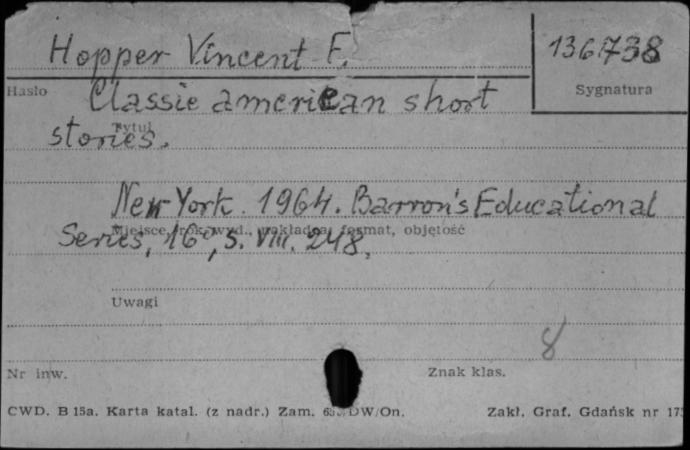 Hopper Vincent F.
136738
Hasło
Sygnatura
Classic american short
Tytuł
stories.
New York. 1964. Barron's Educational
Miejsce, rok wyd., nakładca, format, objętość
Series, 16°, S. VIII. 248.
Uwagi
8
Nr inw.
Znak klas.
CWD. B 15a. Karta katal. (z nadr.) Zam. DW/On.
Zakł. Graf. Gdańsk nr